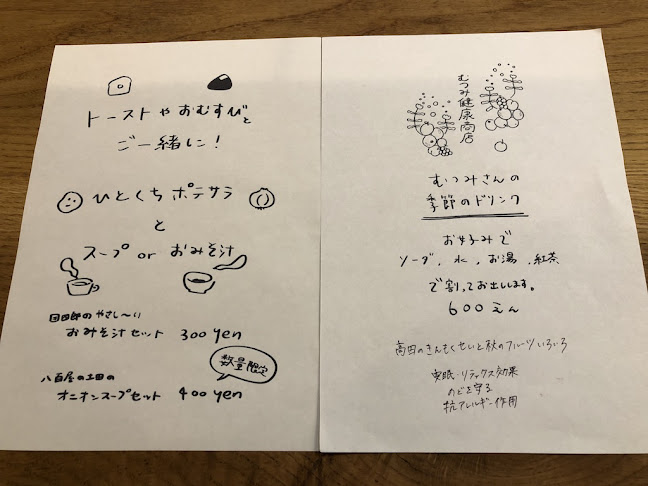 トーストやおむすびと
ご一緒に!
ひとくちポテサラ
と
スープ or おみそ汁
おみそ汁セット 300 yen
数量限定
八百屋の土田の
オニオンスープセット 400 yen
むつみ健康商店
むつみさんの
季節のドリンク
お好みで
ソーダ、水、お湯、紅茶
で割ってお出しします。
600えん
高田のきんもくせいと秋のフルーツいろいろ
安眠・リラックス効果
のどを守る
抗アレルギー作用